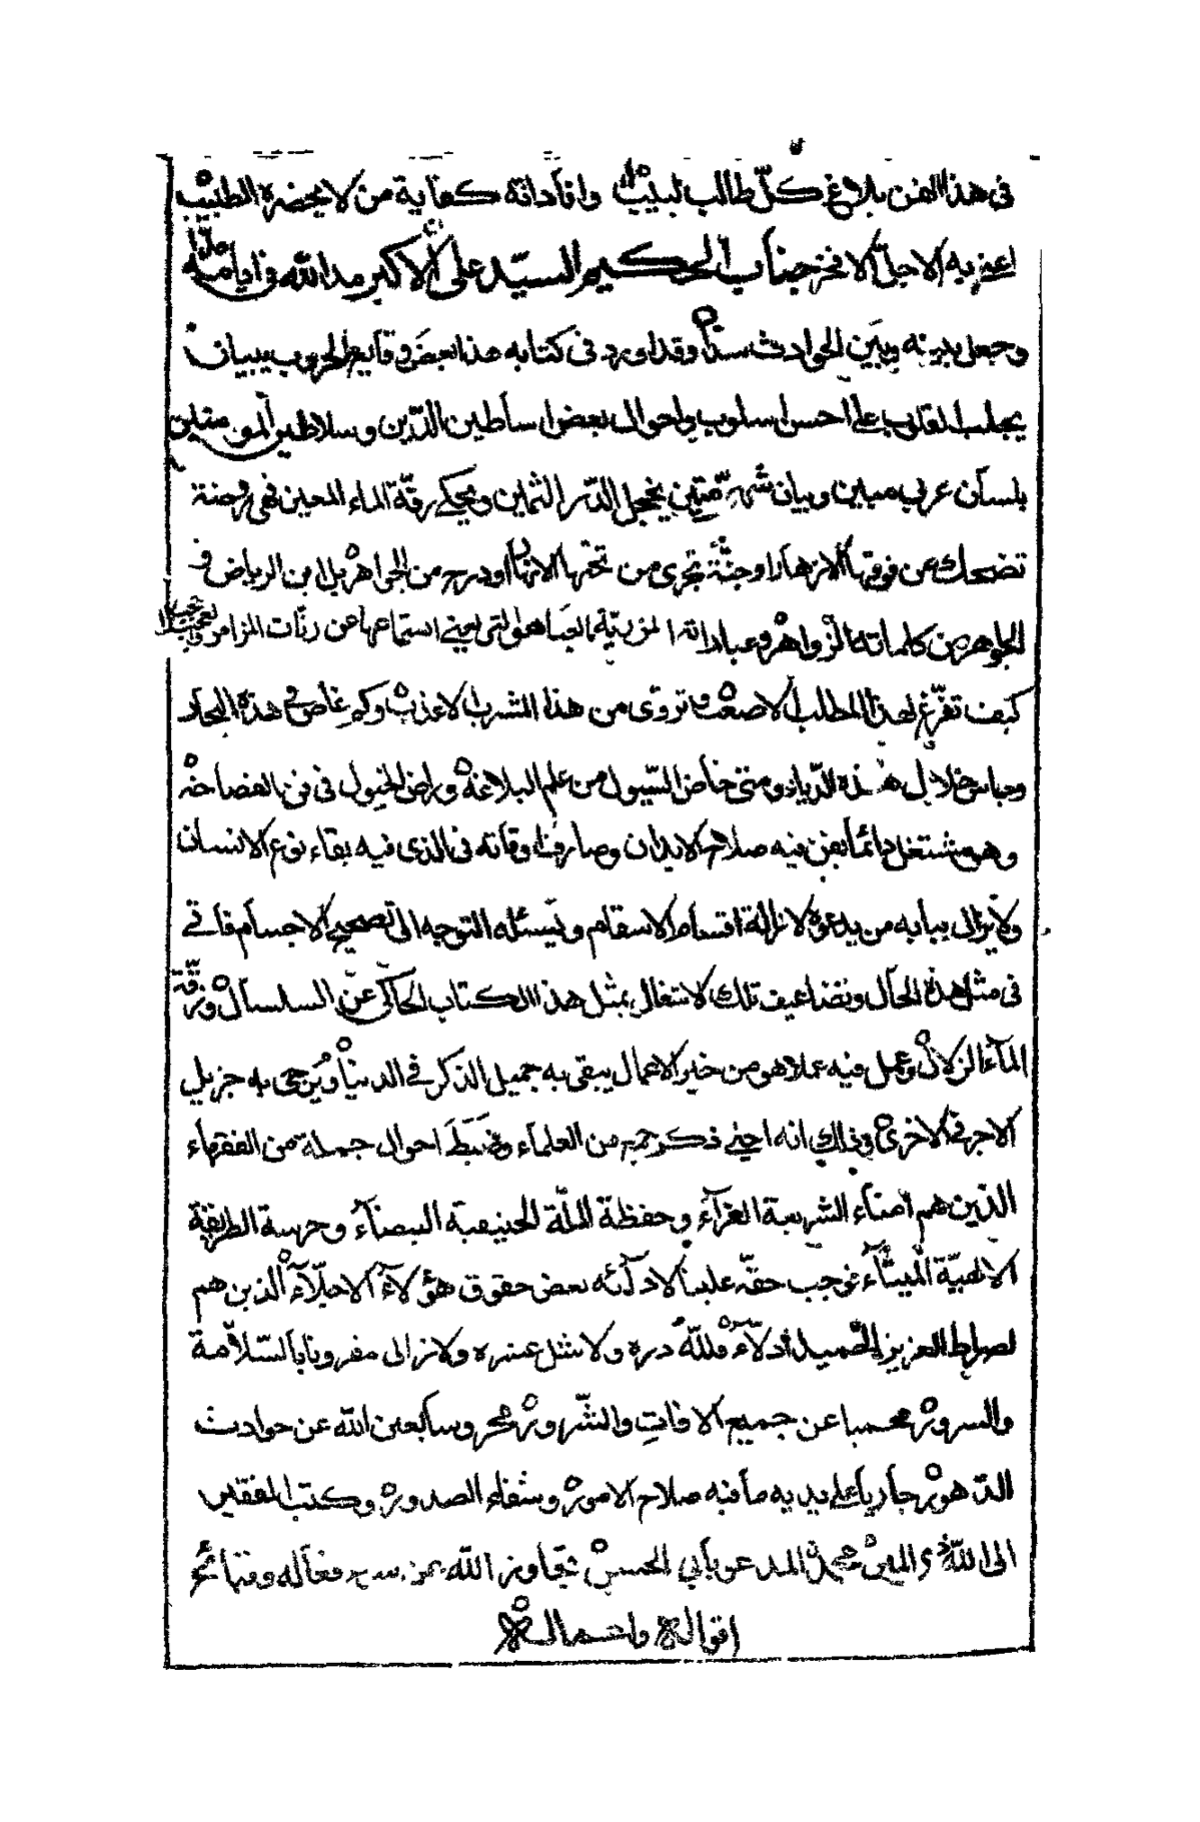 فى هذا الفن بلاغ كلّ طالب لبيب وافاداته كفاية من لا يحضره الطبيب
اعنى به الاجلّ الافخر جناب الحكيم السيّد على الاكبر مد الله فى ايامه
وجعل بينه وبين الحوادث سدّا وقد اورد فى كتابه هذا بعض وقايع الحروب ببيان
يجلب القلوب على احسن اسلوب واحوال بعض اساطين الدّين وسلاطين المؤمنين
بلسان عربى مبين وبيان متين يخجل الدّر الثمين ويحكى رقّة الماء المعين فهى روضة
تضحك عن فوقها الازهار او جنّة تجرى من تحتها الانهار او درج من الجواهر بل اين الرياض و
الجواهر من كلماته كالزواهر وعباداته المزرية التى يغنى استماعها عن رنّات المزامر
كيف تفرّغ لهذا المطلب الاصعب وتروّى من هذا المشرب الاعذب وكم غاص فى هذه البحار
وجاس خلال هذه الدّيار ومتى خاض السّيول من علم البلاغة وراض الخيول فى فن الفصاحة
وهو مشتغل دائما بفن فيه صلاح الابدان وصارف اوقاته فى الذى فيه بقاء نوع الانسان
ولا يزال ببابه من يدعوه لازالة اقسام الاسقام ويسئله التوجه الى تصحيح الاجسام فاتى
فى مثل هذه الحال وتضاعيف تلك الاشغال بمثل هذا الكتاب الحاكى عن السلسال ورقّة
الماء الزلال وعمل فيه عملا هو من خير الاعمال يبقى به جميل الذكر فى الدنيا ويرجى به جزيل
الاجر فى الاخرى وذلك انه احيى ذكر جمع من العلماء وضبط احوال جملة من الفقهاء
الذين هم امناء الشريعة الغرآء وحفظة الملّة الحنيفية البيضآء وحرسة الطريقة
الالهيّة الميثآء فوجب حقّه علينا لادآئه بعض حقوق هؤلآء الاجلّآء الذين هم
لصراط العزيز الحميد ادلّآء فللّه دره ولا شل عشره ولا زال مقرونا بالسّلامة
والسرور محميا عن جميع الافات والشّرور محروسا بعين الله عن حوادث
الدهور جاريا على يديه ما فيه صلاح الامور وشفاء الصدور وكتب المفتقر
الى الله محمد المدعو بابى الحسن تجاوز الله عن فعاله وقبائح
اقواله واعماله